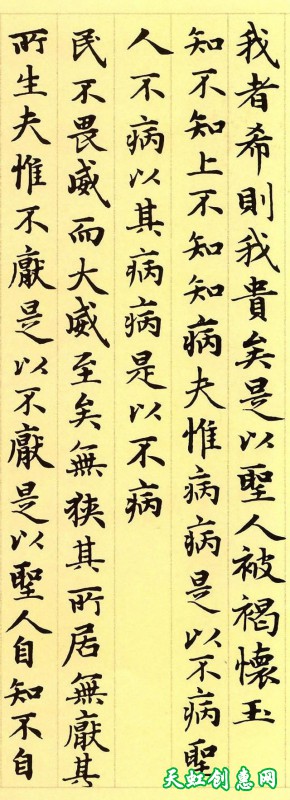 我者希則我貴矣是以聖人被褐懷玉
知不知上不知知病夫惟病病是以不病聖
人不病以其病病是以不病
民不畏威而大威至矣無狹其所居無厭其
所生夫惟不厭是以不厭是以聖人自知不自
天虹创惠网